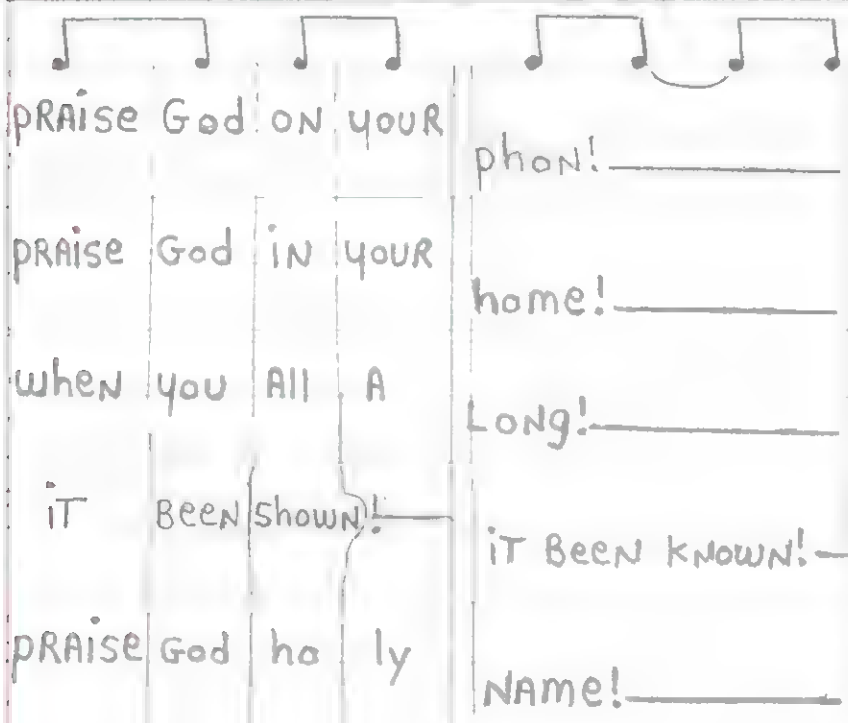 pRAise God ON YOUR phon!
pRAise God iN YOUR home!
when you All A LoNg!
iT BeeN showN! iT BeeN KNOWN!
pRAise God ho ly NAme!